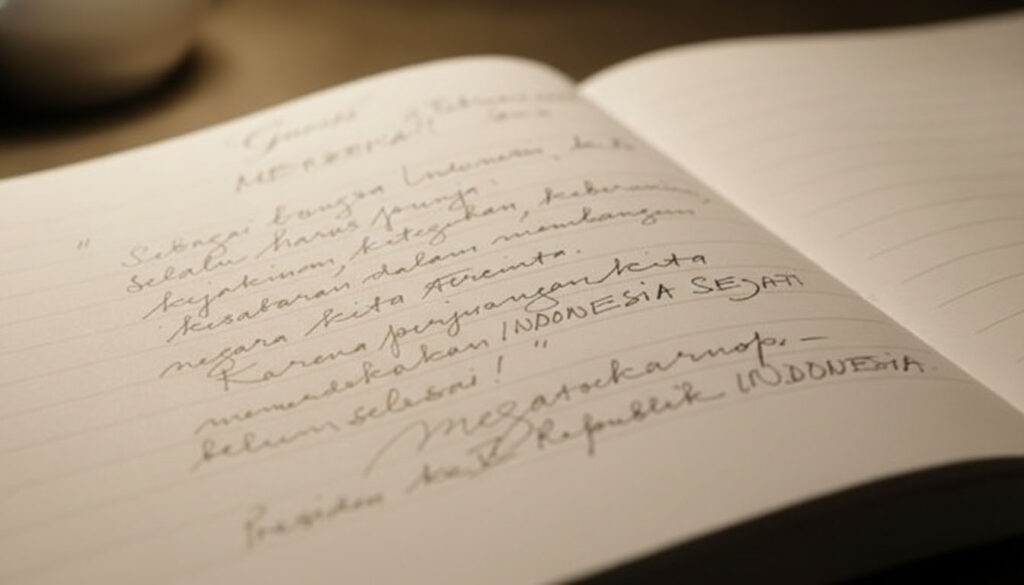 MERDEKA!!
" Sebagai bangsa Indonesia,
selalu harus punya:
kejakinan, ketegakan, keberanian,
kesabaran dalam membangun
negara kita tercinta.
Karena perjuangan kita
memerdekakan INDONESIA SEJATI
belum selesai! "
Megatoekarnop.-
Presiden ke V Republik INDONESIA